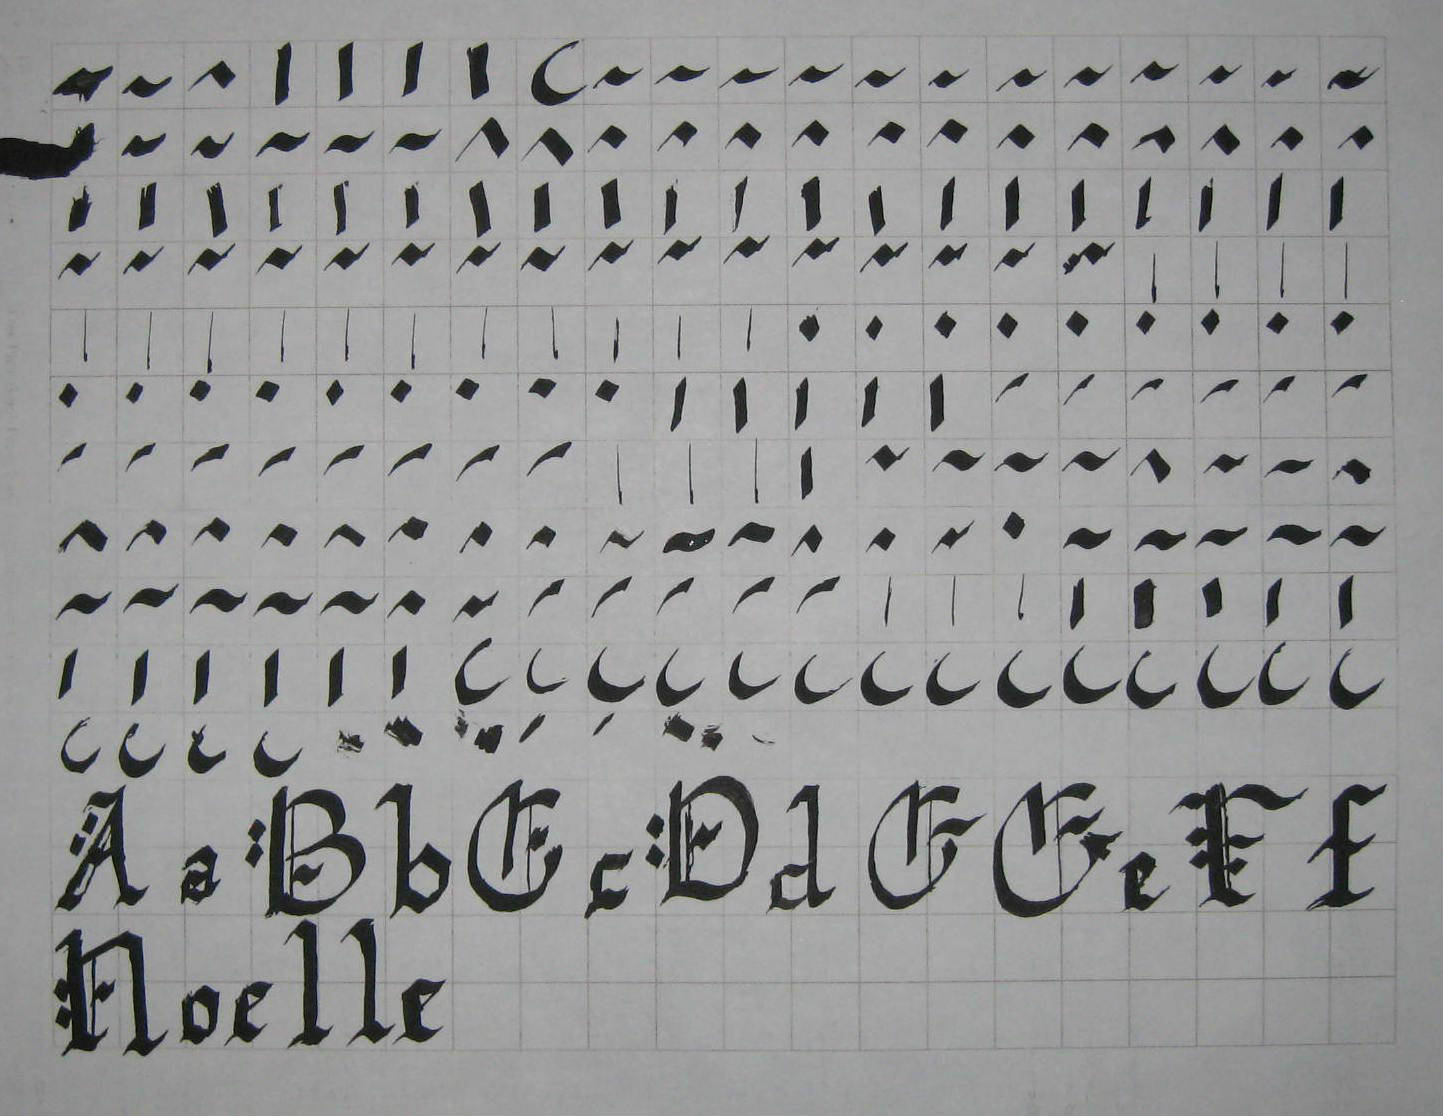 A a B b C c D d E E e F f
Noelle